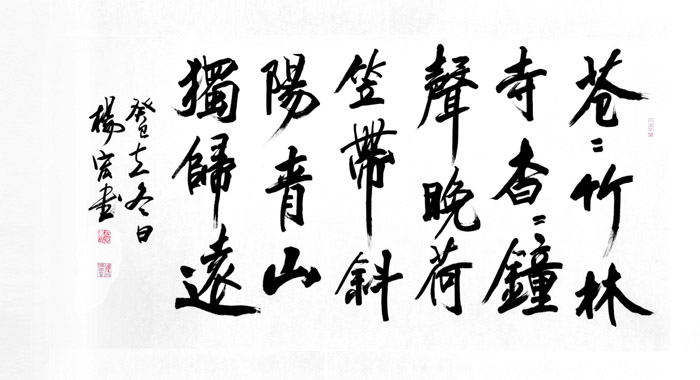 苍〻竹林
寺杳〻鐘
聲晚荷
笠帶斜
陽青山
獨歸遠
癸巳立冬日
楊宏書